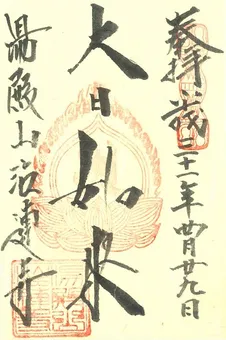 奉拝
二十一年四月廿九日
大日如来
湯殿山注連寺